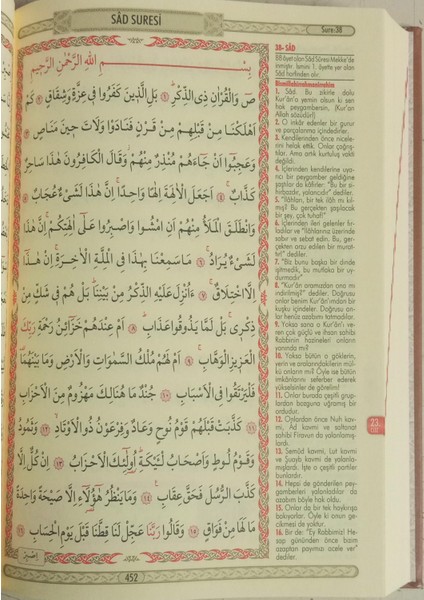 SÂD SURESİ
Sure:38
بِسْــــــمِ اللّٰهِ الرَّحْمٰنِ الرَّح۪يمِ
صٓ وَالْقُرْاٰنِ ذِي الذِّكْرِۜ ﴿١﴾ بَلِ الَّذ۪ينَ كَفَرُوا ف۪ي عِزَّةٍ وَشِقَاقٍ ﴿٢﴾ كَمْ
اَهْلَكْنَا مِنْ قَبْلِهِمْ مِنْ قَرْنٍ فَنَادَوْا وَلَاتَ ح۪ينَ مَنَاصٍ ﴿٣﴾
وَعَجِبُٓوا اَنْ جَٓاءَهُمْ مُنْذِرٌ مِنْهُمْۘ وَقَالَ الْكَافِرُونَ هٰذَا سَاحِرٌ
كَذَّابٌۚ ﴿٤﴾ اَجَعَلَ الْاٰلِهَةَ اِلٰهًا وَاحِدًاۚ اِنَّ هٰذَا لَشَيْءٌ عُجَابٌ ﴿٥﴾
وَانْطَلَقَ الْمَلَاُ مِنْهُمْ اَنِ امْشُوا وَاصْبِرُوا عَلٰٓى اٰلِهَتِكُمْۚ اِنَّ هٰذَا
لَشَيْءٌ يُرَادُۚ ﴿٦﴾ مَا سَمِعْنَا بِهٰذَا فِي الْمِلَّةِ الْاٰخِرَةِۚ اِنْ هٰذَٓا
اِلَّا اخْتِلَاقٌۚ ﴿٧﴾ ءَاُنْزِلَ عَلَيْهِ الذِّكْرُ مِنْ بَيْنِنَاۜ بَلْ هُمْ ف۪ي شَكٍّ مِنْ
ذِكْر۪يۚ بَلْ لَمَّا يَذُوقُوا عَذَابِۜ ﴿٨﴾ اَمْ عِنْدَهُمْ خَزَٓائِنُ رَحْمَةِ رَبِّكَ
الْعَز۪يزِ الْوَهَّابِۚ ﴿٩﴾ اَمْ لَهُمْ مُلْكُ السَّمٰوَاتِ وَالْاَرْضِ وَمَا بَيْنَهُمَا۠
فَلْيَرْتَقُوا فِي الْاَسْبَابِ ﴿١٠﴾ جُنْدٌ مَا هُنَالِكَ مَهْزُومٌ مِنَ الْاَحْزَابِ
﴿١١﴾ كَذَّبَتْ قَبْلَهُمْ قَوْمُ نُوحٍ وَعَادٌ وَفِرْعَوْنُ ذُو الْاَوْتَادِۙ ﴿١٢﴾ وَثَمُودُ
وَقَوْمُ لُوطٍ وَاَصْحَابُ لْـَٔيْكَةِۜ اُو۬لٰٓئِكَ الْاَحْزَابُ ﴿١٣﴾ اِنْ كُلٌّ اِلَّا
كَذَّبَ الرُّسُلَ فَحَقَّ عِقَابِ۟ ﴿١٤﴾ وَمَا يَنْظُرُ هٰٓؤُ۬لَٓاءِ اِلَّا صَيْحَةً وَاحِدَةً
مَا لَهَا مِنْ فَوَاقٍ ﴿١٥﴾ وَقَالُوا رَبَّنَا عَجِّلْ لَنَا قِطَّنَا قَبْلَ يَوْمِ الْحِسَابِ ﴿١٦﴾
اِصْبِرْ
452
38- SÂD
88 âyet olan Sâd Sûresi Mekke'de
inmiştir. İsmini 1. âyette yer olan
Sâd harfinden alır.
Bismillahirrahmanirrahim
1. Sâd. Bu zikirle dolu
Kur'ân'a yemin olsun ki sen
hak peygambersin. (Kur'an
Allah sözüdür!)
2. O inkâr edenler bir gurur
ve parçalanma içindedirler.
3. Kendilerinden önce nice-
lerini helak ettik. Onlar çağrış-
tılar. Ama artık kurtuluş vakti
değildi.
4. İçlerinden kendilerine uya-
rıcı bir peygamber geldiğine
şaştılar da kâfirler: "Bu bir si-
hirbazdır, yalancıdır" dediler.
5. "İlâhları, bir tek ilâh mı kıl-
mış? Bu gerçekten şaşılacak
bir şey, çok tuhaf!"
6. İçlerinden ileri gelenler fır-
ladılar ve "ilâhlarınız üzerinde
sabır ve sebat edin. Bu, ger-
çekten arzu edilen bir murat-
tır!" dediler.
7. "Biz bunu başka bir dinde
işitmedik, bu mutlaka bir uy-
durmadır"
8. "Kur'ân aramızdan ona mı
indirilmiş?" dediler. Doğrusu
onlar benim Kur'ân'ımdan bir
kuşku içindeler. Doğrusu on-
lar henüz azabımı tatmadılar.
9. Yoksa sana o Kur'ân'ı ve-
ren çok güçlü ve ihsan sahibi
Rabbinin hazineleri onların
yanında mı?
10. Yoksa bütün o göklerin,
yerin ve aralarındakilerin mül-
kü onların mı? Öyle ise bütün
imkânlarını seferber ederek
yükselsinler de görelim!
11. Onlar burada çeşitli grup-
lardan bozguna uğramış bir
ordudur.
12. Onlardan önce Nuh kav-
mi, Âd kavmi ve saltanat
sahibi Firavun da yalanlamış-
lardı.
13. Semûd kavmi, Lut kavmi
ve Şuayb kavmi de yalanla-
mışlardı. İşte o çeşitli partiler
bunlardır.
14. Hepsi de gönderilen pey-
gamberleri yalanladılar da
azabım böyle hak oldu.
15. Onlar da bir tek haykırışa
bakıyorlar. Öyle ki onun ge-
cikmesi de yoktur.
16. Bir de: "Ey Rabbimiz! He-
sap gününden önce bizim
azaptan payımızı acele ver"
dediler.
23